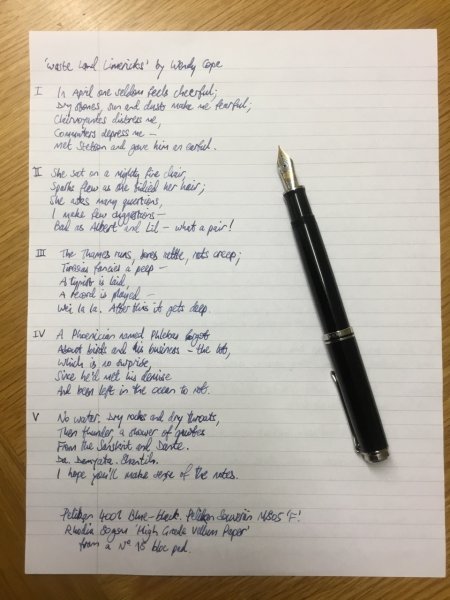 'Waste Land Limericks' by Wendy Cope
I In April one seldom feels cheerful;
Dry stones, sun and dust make me fearful;
Clairvoyantes distress me,
Commuters depress me –
Met Stetson and gave him an earful.
II She sat on a mighty fine chair,
Sparks flew as she tidied her hair;
She asks many questions,
I make few suggestions –
Bad as Albert and Lil – what a pair!
III The Thames runs, bones rattle, rats creep;
Tiresias fancies a peep –
A typist is laid,
A record is played –
Wei la la. After this it gets deep.
IV A Phoenician named Phlebas forgot
About birds and his business – the lot,
Which is no surprise,
Since he'd met his demise
And been left in the ocean to rot.
V No water. Dry rocks and dry throats,
Then thunder, a shower of quotes
From the Sanskrit and Dante.
Da. Damyata. Shantih.
I hope you'll make sense of the notes.
Pelikan 4001 Blue-black. Pelikan Souverän M805 'F'.
Rhodia 80gsm 'High Grade Vellum Paper'
from a Nº 18 bloc pad.